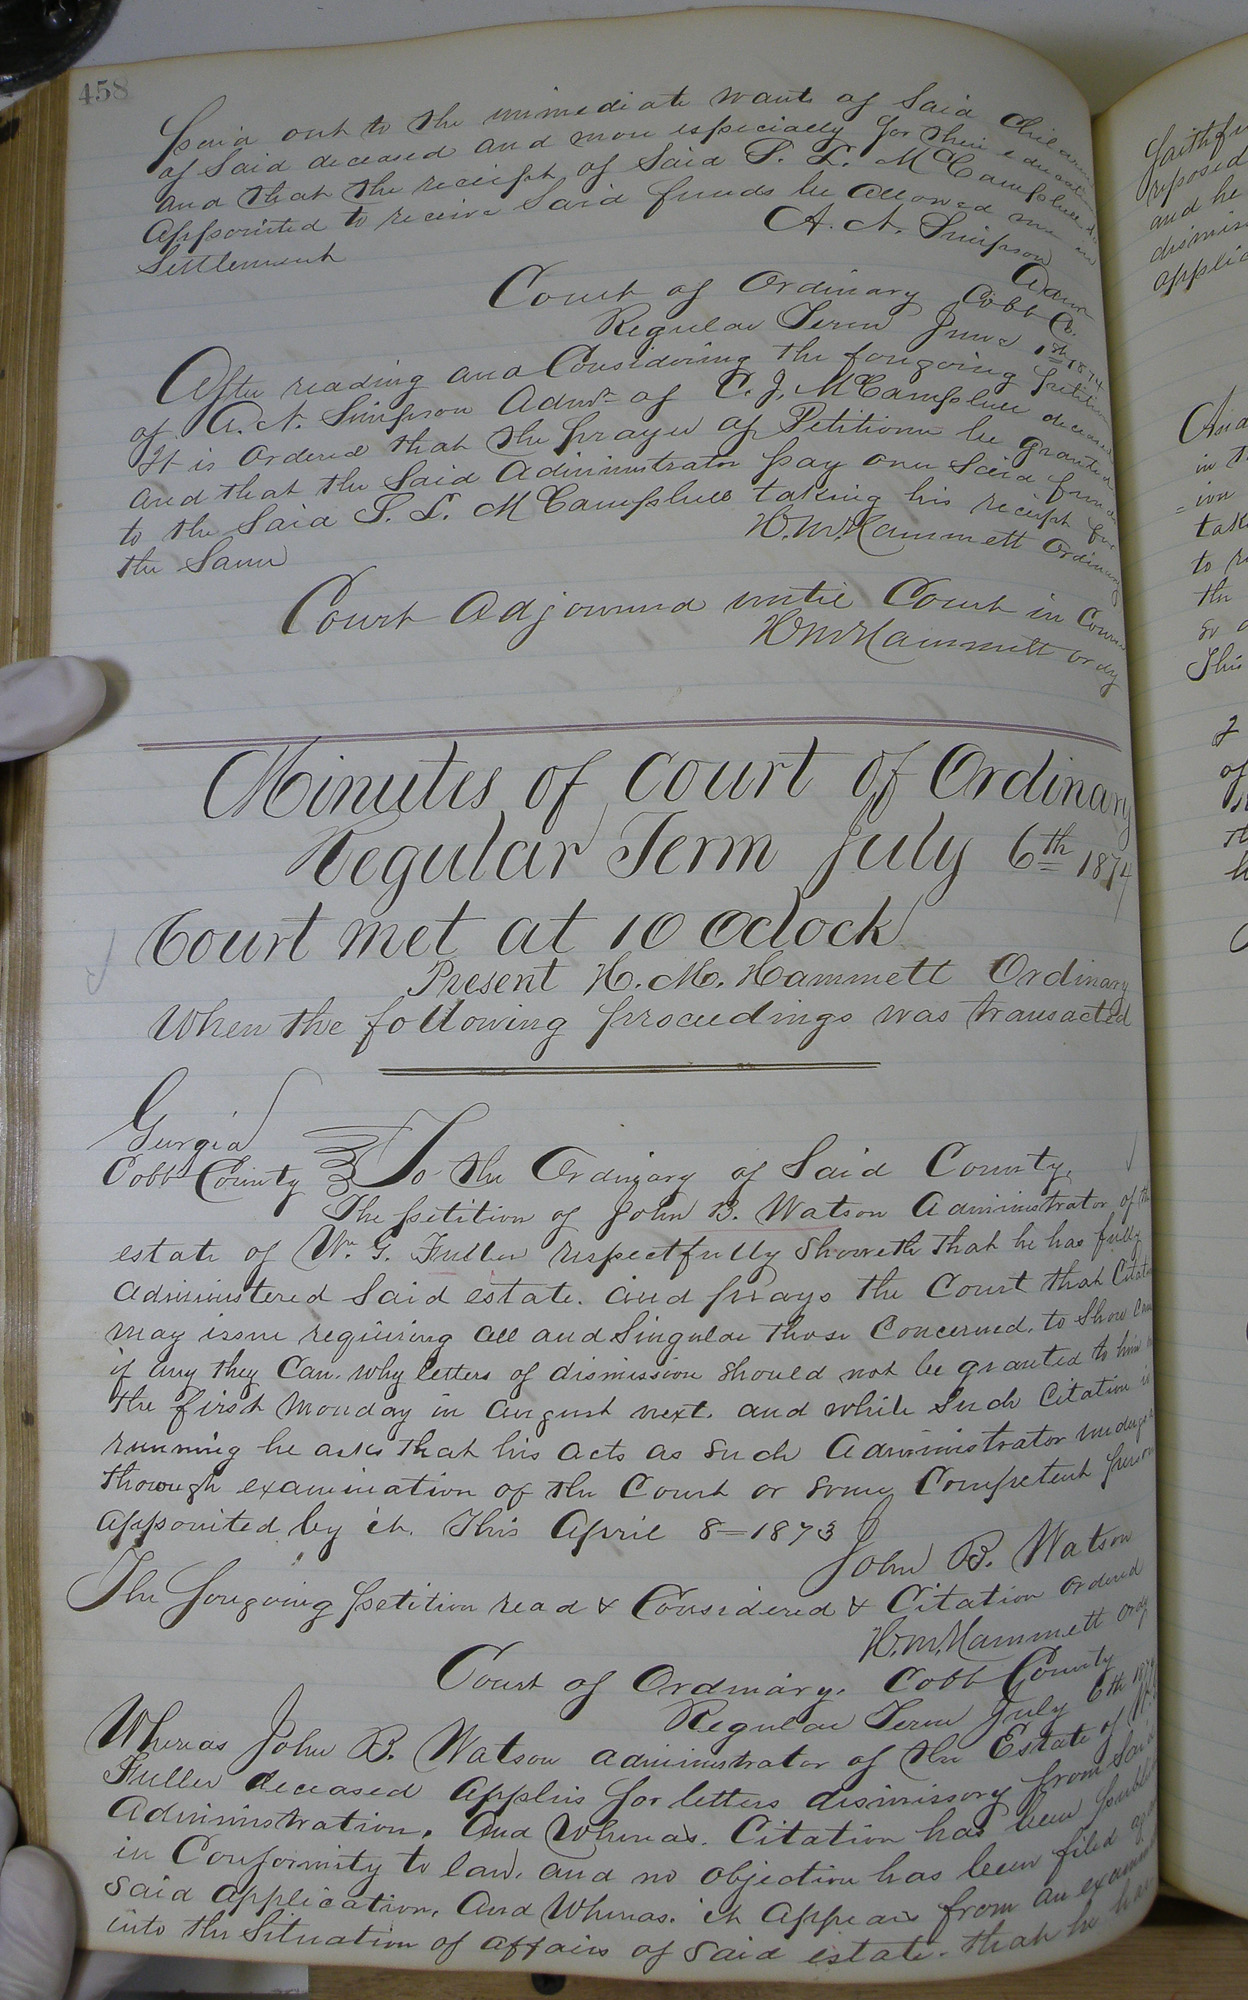 458
paid out to the immediate wants of Said Children
of Said deceased and more especially for their education
and that the receipt of Said S. L. McCampbell
Appointed to receive Said funds be allowed me in
Settlement
A. N. Simpson
Admr
Court of Ordinary Cobb Co.
Regular Term June 1st 1874
After reading and Considering the foregoing Petition
of A. N. Simpson Admr of C. J. McCampbell deceased
It is Ordered that the prayer of Petitioner be granted
and that the Said Administrator pay over Said funds
to the Said S. L. McCampbell taking his receipt for
the Same
H. M. Hammett Ordinary
Court Adjourned until Court in Course
H M Hammett ordy
Minutes of Court of Ordinary
Regular Term July 6th 1874
Court met at 10 Oclock
Present H. M. Hammett Ordinary
When the following proceedings was transacted
Georgia
Cobb County To the Ordinary of Said County,
The petition of John B. Watson Administrator of the
estate of Wm G. Fuller respectfully Showeth that he has fully
administered Said estate. and prays the Court that Citation
may issue requiring all and Singular those Concerned, to Show Cause
if any they Can. why letters of dismission should not be granted to him
the first Monday in August next. and while Such Citation is
running he asks that his acts as such Administrator undergo a
thorough examination of the Court or some Competent person
appointed by it. This April 8 = 1873
John B. Watson
The foregoing petition read & Considered & Citation ordered
H. M. Hammett Ordy
Court of Ordinary. Cobb County
Regular Term July 6th 1874
Whereas John B. Watson administrator of the Estate of W. G.
Fuller deceased applies for letters dismissory from Said
Administration. And Whereas. Citation has been published
in Conformity to law. and no objection has been filed against
Said application. And Whereas. it appears from an examination
into the Situation of affairs of Said estate. that he has
faithfu
reposed
and he
dismis
applic
in th
take
to re
the
so
This
of